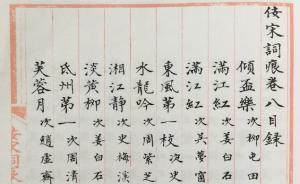 佞宋詞痕卷八目錄
傾盃樂次柳屯田
滿江紅次姜白石
滿江紅次吳夢窗
東風第一枝次史
水龍吟次周紫芝
湘江靜次史梅溪
淡黄柳次姜白石
氐州第一次周清
芙蓉月次趙虛齋